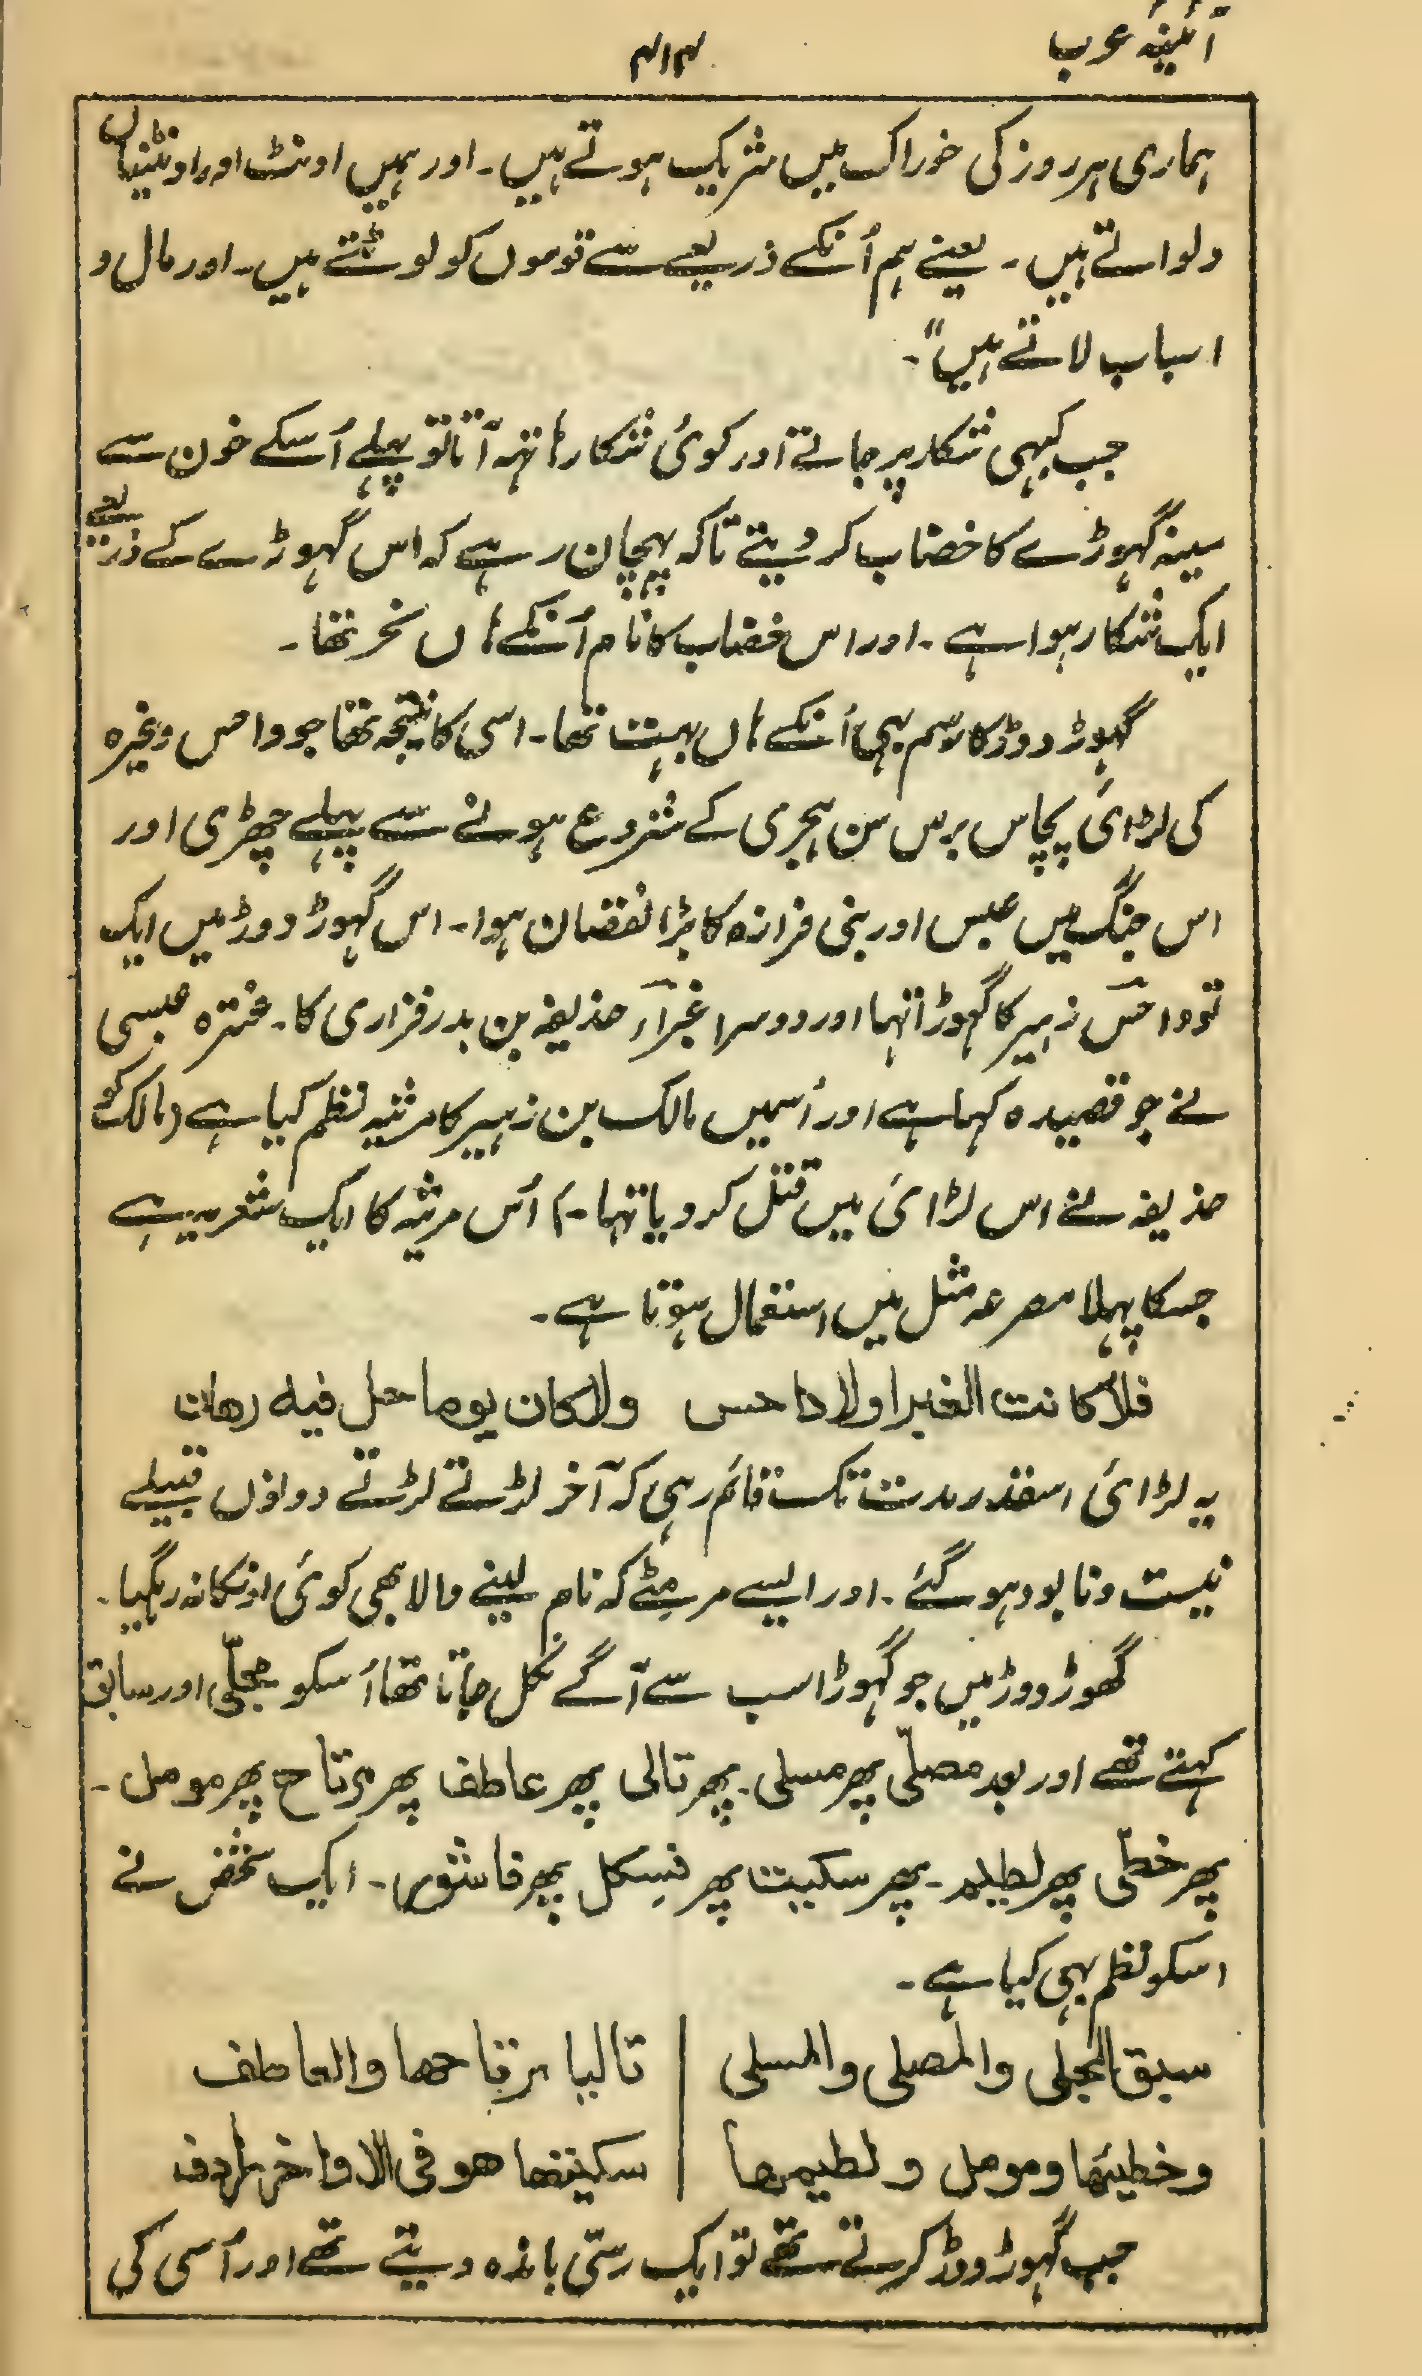 آئینۂ عرب
۴۱۴
ہماری ہر روز کی خوراک میں شریک ہوتے ہیں۔ اور ہمیں اونٹ اور اونٹنیاں
دلواتے ہیں۔ یعنے ہم اُنکے ذریعے سے قوموں کو لوٹتے ہیں۔ اور مال و
اسباب لاتے ہیں"۔
جب کبہی شکار پر جاتے اور کوئی شکار ہاتہہ آتا تو پہلے اُسکے خون سے
سینہ گہوڑے کا خضاب کر دیتے تاکہ پہچان رہے کہ اس گہوڑے کے ذریعے
ایک شکار ہوا ہے۔ اور اس خضاب کا نام اُنکے ہاں نحر تھا۔
گہوڑ دوڑ کا رسم بہی اُنکے ہاں بہت تھا۔ اسی کا نتیجہ تھا جو داحس وغیرہ
کی لڑائی پچاس برس سن ہجری کے شروع ہونے سے پہلے چھڑی اور
اس جنگ میں عبس اور بنی فزارہ کا بڑا نقصان ہوا۔ اس گہوڑ دوڑ میں ایک
تو داحس زہیر کا گہوڑا تہا اور دوسرا غبرآء حذیفہ بن بدر فزاری کا۔ عنترہ عبسی
نے جو قصیدہ کہا ہے اور اُسمیں مالک بن زہیر کا مرثیہ نظم کیا ہے (مالک کو
حذیفہ نے اس لڑائی میں قتل کر دیا تہا۔) اُس مرثیہ کا ایک شعر یہ ہے
جسکا پہلا مصرعہ مثل میں استعمال ہوتا ہے۔
فلا کانت الغبرا ولا داحس ولا کان یوما حل فیه رهان
یہ لڑائی اسقدر مدت تک قائم رہی کہ آخر لڑتے لڑتے دونوں قبیلے
نیست و نابود ہو گئے۔ اور ایسے مر مٹے کہ نام لینے والا بھی کوئی اونکا نہ رہگیا۔
گھوڑ دوڑ میں جو گہوڑا سب سے آگے نکل جاتا تھا اُسکو مجلّی اور سابق
کہتے تھے اور بعد مصلّی پھر مسلی۔ پھر تالی پھر عاطف پھر مرتاح پھر مومل۔
پھر خطّی پھر لطیم۔ پھر سکیت پھر فسکل پھر قاشور۔ ایک شخص نے
اسکو نظم بہی کیا ہے۔
سبق المجلی والمصلی والمسلی | تالیا مرتاحها والعاطف
وخطیئها ومومل ولطیمها | سکیتها هو فی الاواخر
جب گہوڑ دوڑ کرتے تھے تو ایک رسّی باندہ دیتے تھے اور اُسی کی